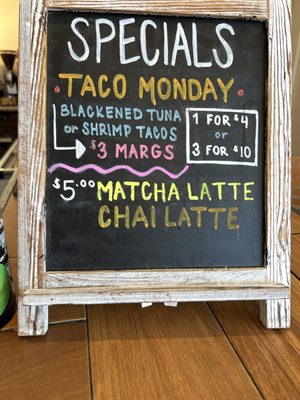 SPECIALS
TACO MONDAY
BLACKENED TUNA
or SHRIMP TACOS
$3 MARGS
1 FOR $4
or
3 FOR $10
$5.00 MATCHA LATTE
CHAI LATTE